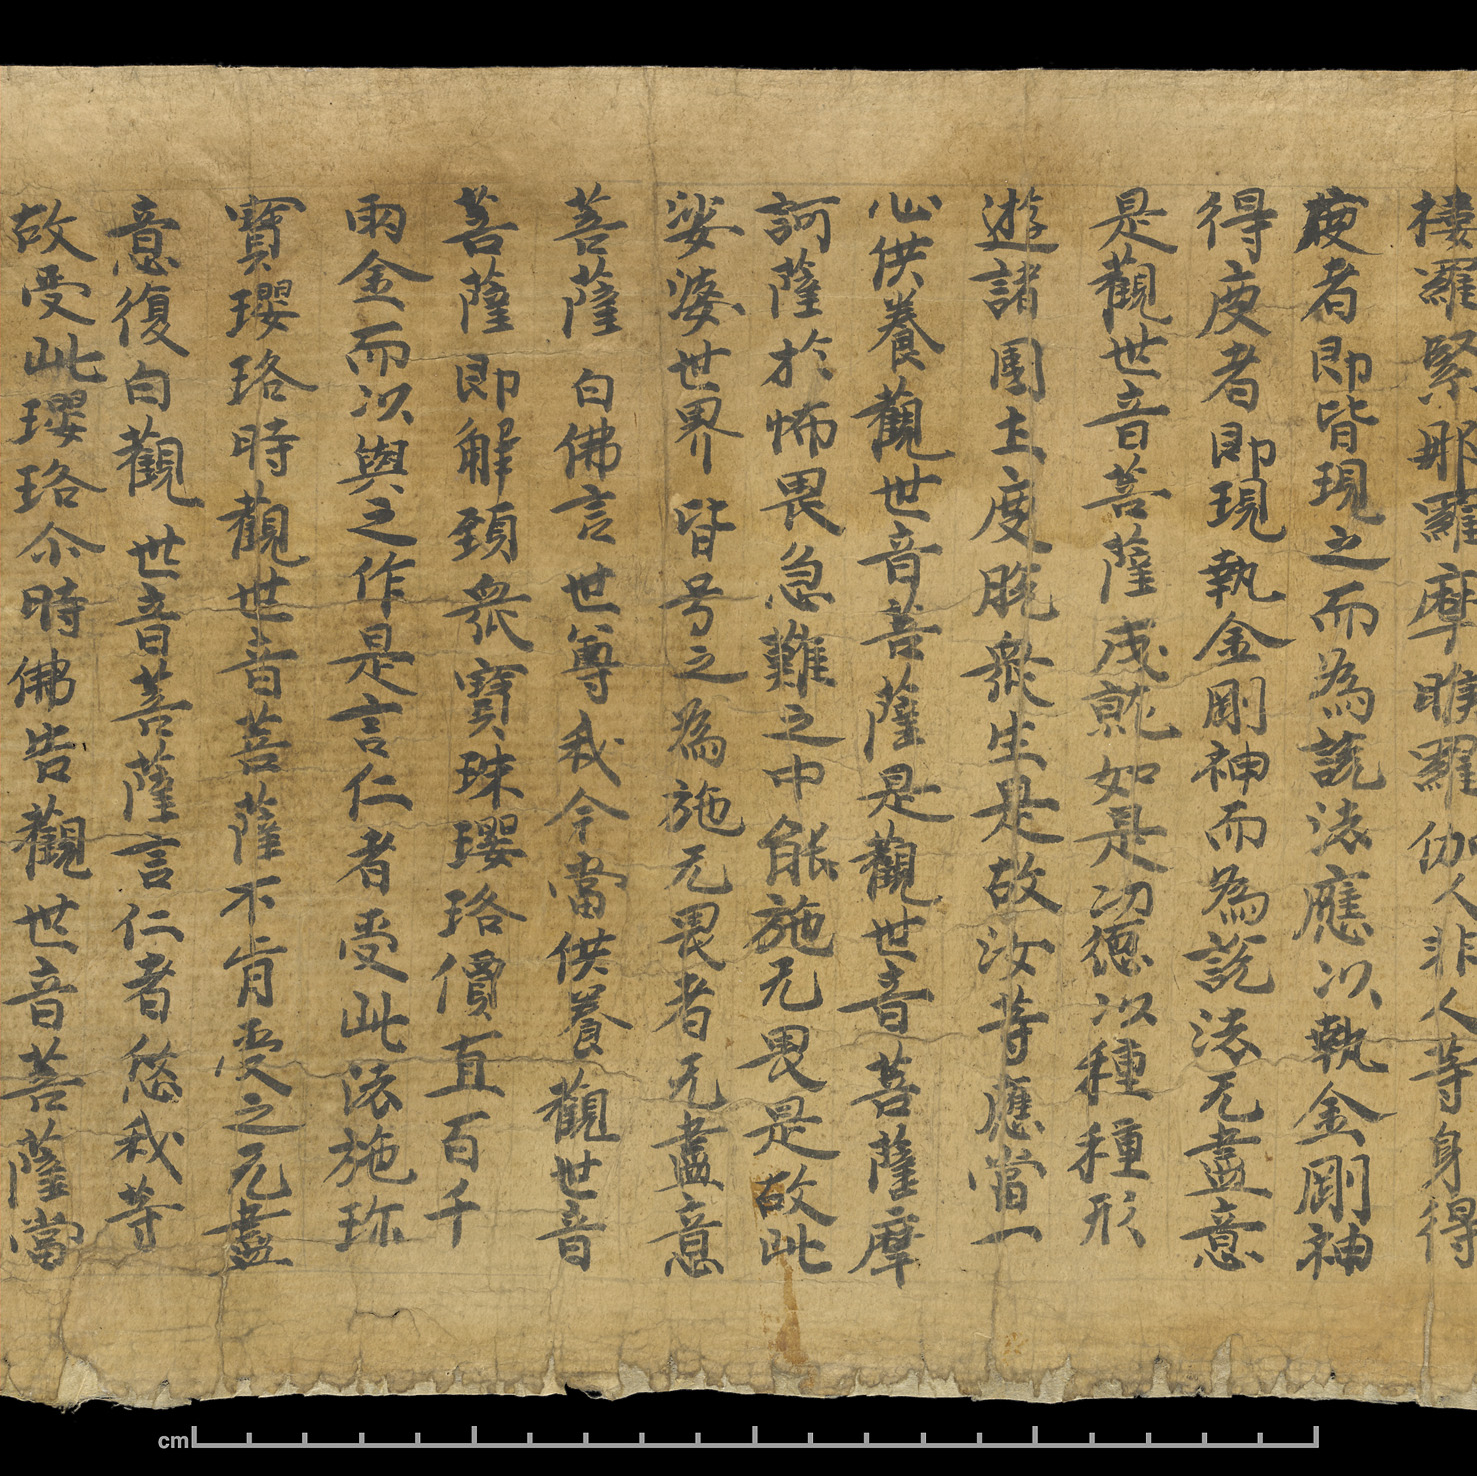 樓羅緊那羅摩睺羅伽人非人等身得
庻者即皆現之而為說法應以執金剛神
得庻者即現執金剛神而為說法无盡意
是觀世音菩薩成就如是功德以種種形
遊諸国土度脫衆生是故汝等應當一
心供養觀世音菩薩是觀世音菩薩摩
訶薩於怖畏急難之中能施无畏是故此
娑婆世界皆号之為施无畏者无盡意
菩薩白佛言世尊我今當供養觀世音
菩薩即解頚衆寶珠瓔珞價直百千
兩金而以與之作是言仁者受此法施珎
寶瓔珞時觀世音菩薩不肯受之无盡
意復白觀世音菩薩言仁者愍我等
故受此瓔珞尒時佛告觀世音菩薩當